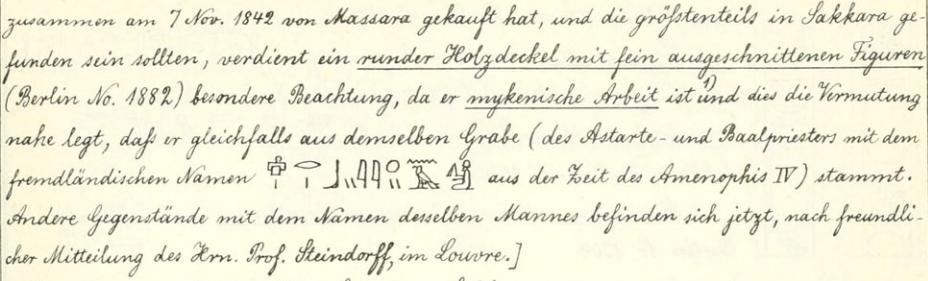 zusammen am 7 Nov. 1842 von Massara gekauft hat, und die größtenteils in Sakkara ge-
funden sein sollten, verdient ein runder Holzdeckel mit fein ausgeschnittenen Figuren
(Berlin No. 1882) besondere Beachtung, da er mykenische Arbeit ist 1) und dies die Vermutung
nahe legt, daß er gleichfalls aus demselben Grabe (des Astarte- und Baalpriesters mit dem
fremdländischen Namen aus der Zeit des Amenophis IV) stammt.
Andere Gegenstände mit dem Namen desselben Mannes befinden sich jetzt, nach freundli-
cher Mitteilung des Hrn. Prof. Steindorff, im Louvre.]